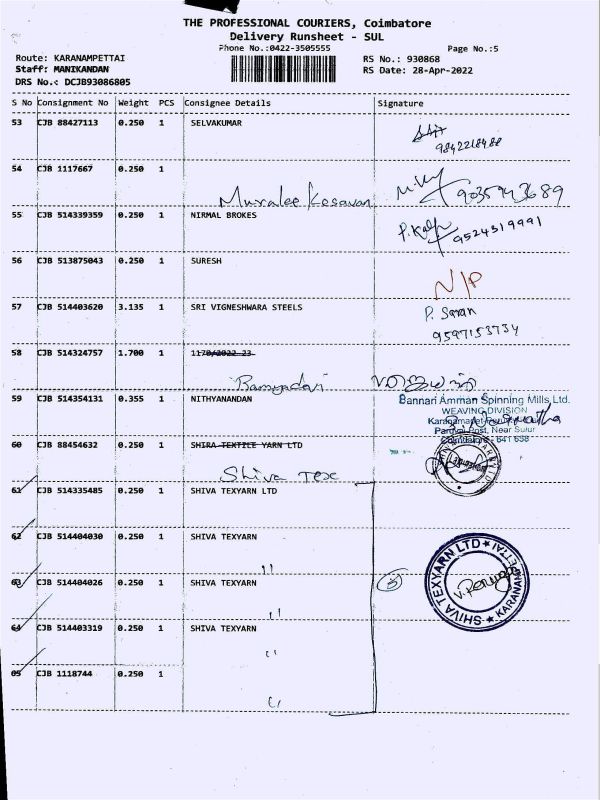 THE PROFESSIONAL COURIERS, Coimbatore
Delivery Runsheet - SUL
Phone No.:0422-3505555
Page No.:5
Route: KARANAMPETTAI
RS No.: 930868
Staff: MANIKANDAN
RS Date: 28-Apr-2022
DRS No.: DCJB93086805
S No Consignment No Weight PCS Consignee Details Signature
53 CJB 88427113 0.250 1 SELVAKUMAR
9842218488
54 CJB 1117667 0.250 1
Muralee Kesavan 9035943689
55 CJB 514339359 0.250 1 NIRMAL BROKES
9524319991
56 CJB 513875043 0.250 1 SURESH
N/P
57 CJB 514403620 3.135 1 SRI VIGNESHWARA STEELS P. Saran
9597153734
58 CJB 514324757 1.700 1 1170/2022-23
59 CJB 514354131 0.355 1 NITHYANANDAN Bannari Amman Spinning Mills Ltd.
WEAVING DIVISION
Post, Near Sulur
Coimbatore - 641 658
60 CJB 88454632 0.250 1 SHIRA TEXTILE YARN LTD
Shiva Tex
61 CJB 514335485 0.250 1 SHIVA TEXYARN LTD
62 CJB 514404030 0.250 1 SHIVA TEXYARN
"
63 CJB 514404026 0.250 1 SHIVA TEXYARN 5
"
SHIVA TEXYARN LTD
64 CJB 514403319 0.250 1 SHIVA TEXYARN
"
65 CJB 1118744 0.250 1
"